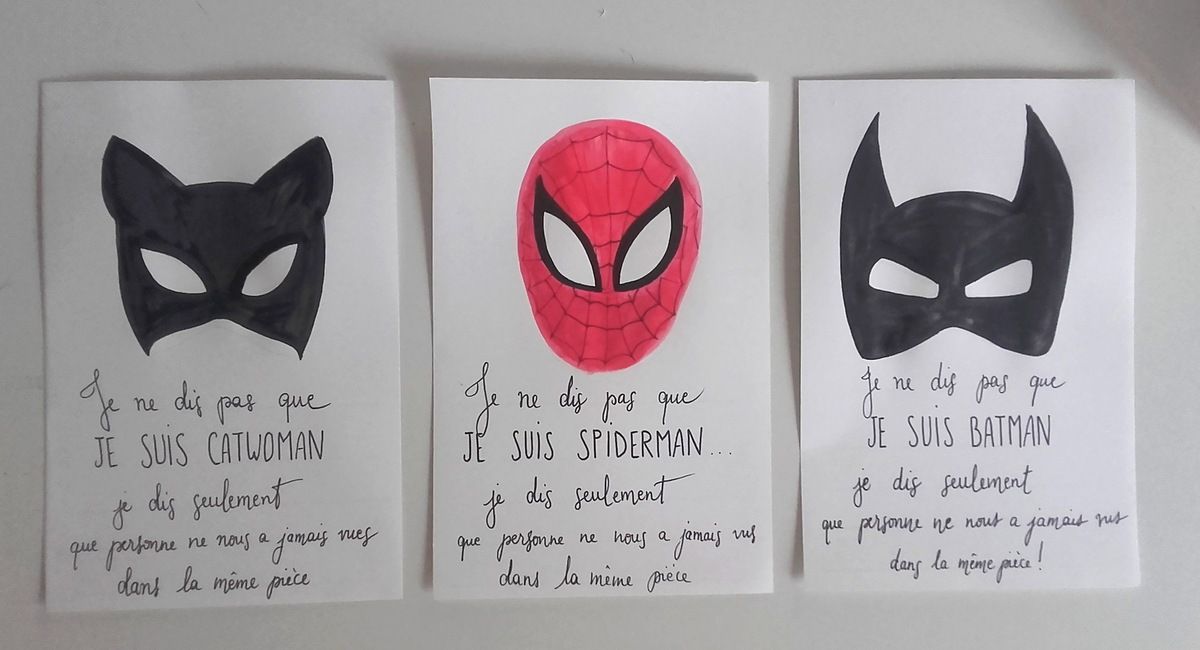 Je ne dis pas que
JE SUIS CATWOMAN
je dis seulement
que personne ne nous a jamais vues
dans la même pièce
Je ne dis pas que
JE SUIS SPIDERMAN...
je dis seulement
que personne ne nous a jamais vus
dans la même pièce
Je ne dis pas que
JE SUIS BATMAN
je dis seulement
que personne ne nous a jamais vus
dans la même pièce!